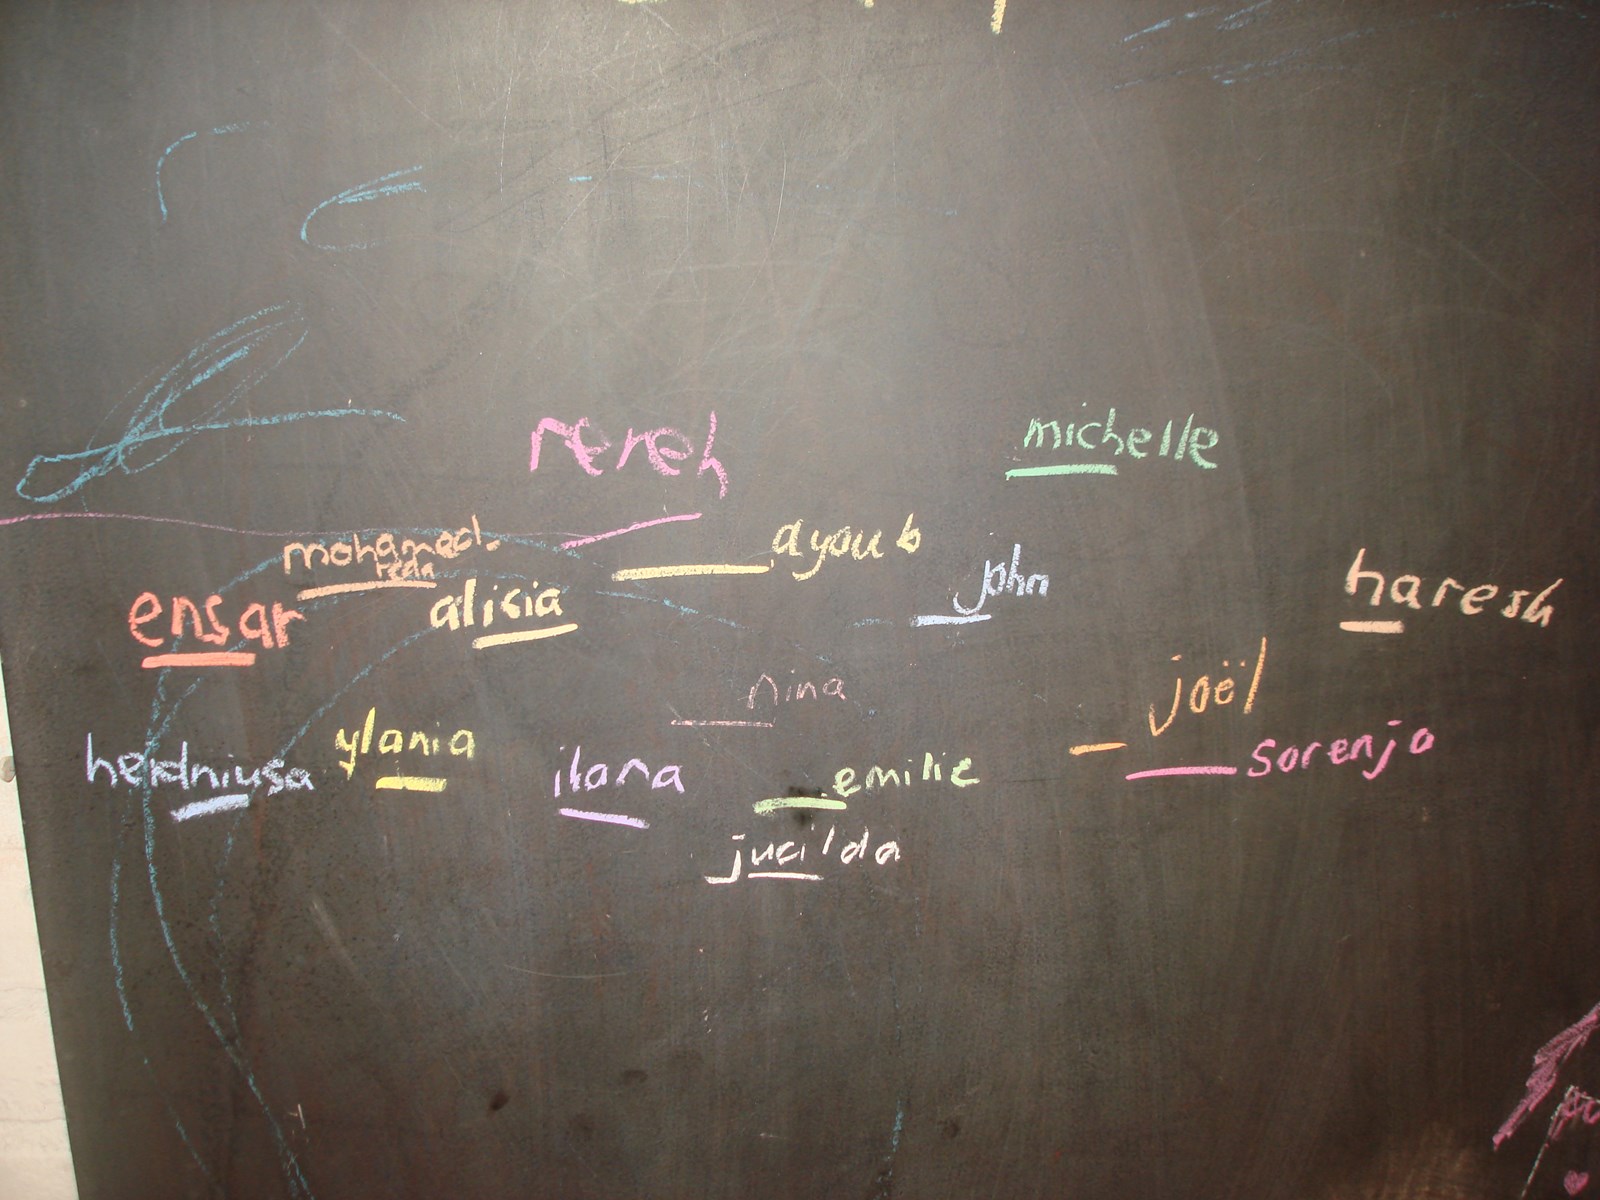 rereh
michelle
mohamed.
reda
ayoub
john
haresh
ensar
alicia
nina
joël
ylania
sorenjo
heidniusa
ilana
emilie
jucilda